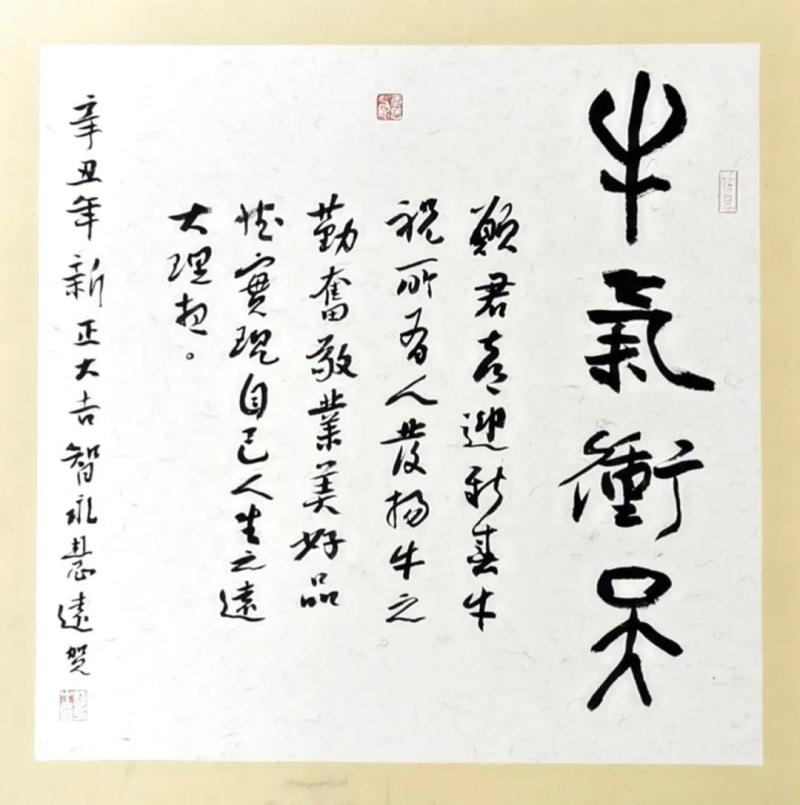 牛氣衝天
願君喜迎新春牛
祝所有人發揚牛之
勤奮敬業美好品
實現自己人生之遠
大理想。
辛丑年新正大吉智永慧遠賀